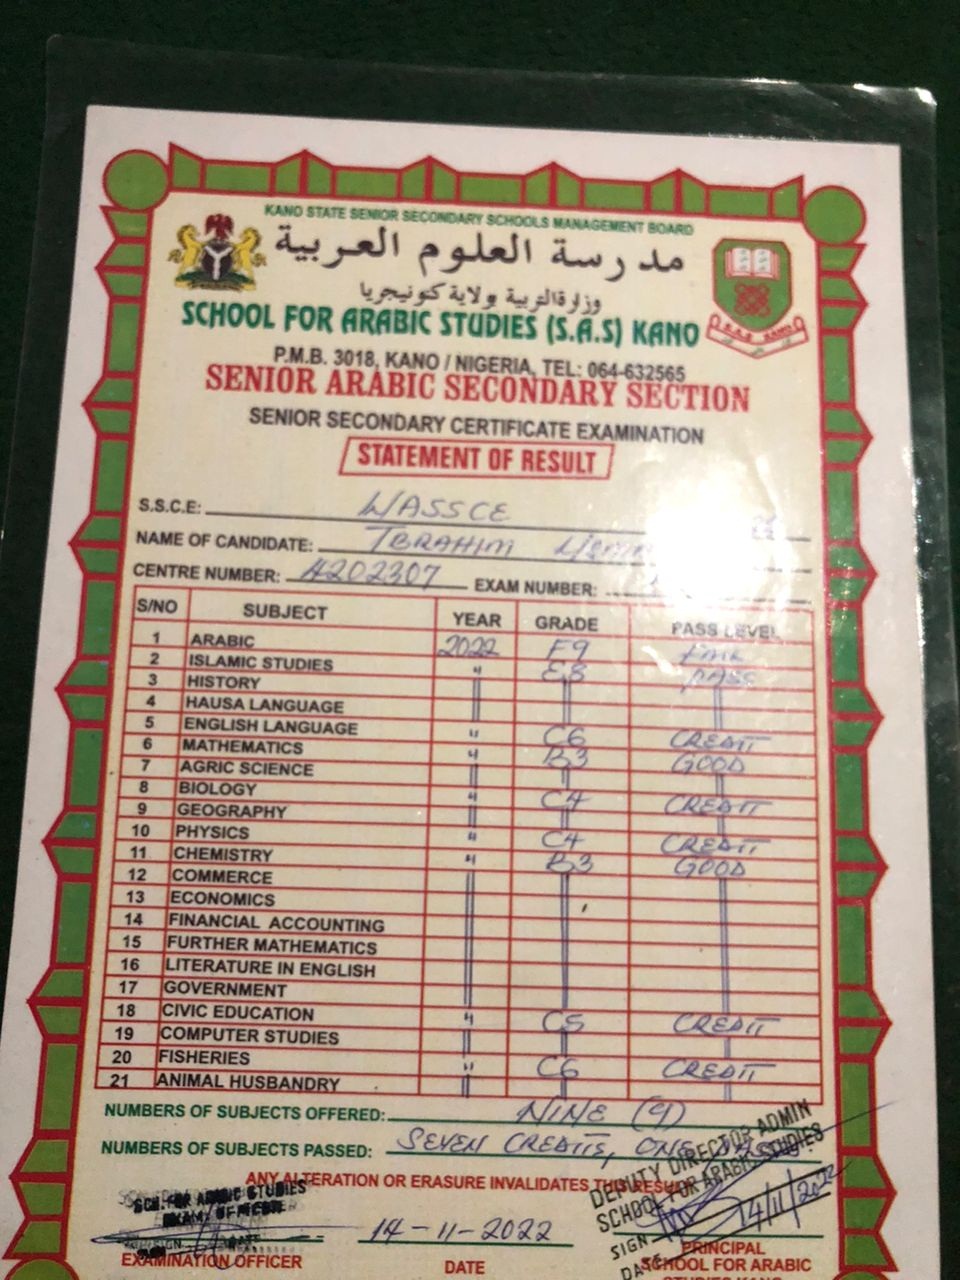 KANO STATE SENIOR SECONDARY SCHOOLS MANAGEMENT BOARD
مدرسة العلوم العربية
وزارة التربية بولاية كنو نيجريا
SCHOOL FOR ARABIC STUDIES (S.A.S) KANO
P.M.B. 3018, KANO / NIGERIA, TEL: 064-632565
SENIOR ARABIC SECONDARY SECTION
SENIOR SECONDARY CERTIFICATE EXAMINATION
STATEMENT OF RESULT
S.S.C.E: WASSCE
NAME OF CANDIDATE: IBRAHIM
CENTRE NUMBER: 4202307 EXAM NUMBER:
S/NO SUBJECT YEAR GRADE PASS LEVEL
1 ARABIC 2022 F9 FAIL
2 ISLAMIC STUDIES " E8 PASS
3 HISTORY
4 HAUSA LANGUAGE
5 ENGLISH LANGUAGE " C6 CREDIT
6 MATHEMATICS " B3 GOOD
7 AGRIC SCIENCE
8 BIOLOGY " C4 CREDIT
9 GEOGRAPHY
10 PHYSICS " C4 CREDIT
11 CHEMISTRY " B3 GOOD
12 COMMERCE
13 ECONOMICS
14 FINANCIAL ACCOUNTING
15 FURTHER MATHEMATICS
16 LITERATURE IN ENGLISH
17 GOVERNMENT
18 CIVIC EDUCATION " C5 CREDIT
19 COMPUTER STUDIES
20 FISHERIES " C6 CREDIT
21 ANIMAL HUSBANDRY
NUMBERS OF SUBJECTS OFFERED: NINE (9)
NUMBERS OF SUBJECTS PASSED: SEVEN CREDITS, ONE
ANY ALTERATION OR ERASURE INVALIDATES THE RESULT
DEPUTY DIRECTOR ADMIN
SCHOOL FOR ARABIC STUDIES
SIGN
DATE 14/11/2022
SCH. FOR ARABIC STUDIES
EXAM. OFFICE
SIGN
14-11-2022
EXAMINATION OFFICER DATE PRINCIPAL
SCHOOL FOR ARABIC
STUDIES KANO